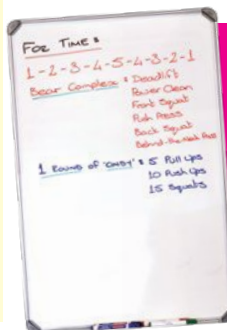 FOR TIME:
1-2-3-4-5-4-3-2-1
Bear Complex: Deadlift
Power Clean
Front Squat
Push Press
Back Squat
Behind-the-Neck Press
1 Round of 'CINDY': 5 Pull Ups
10 Push Ups
15 Squats